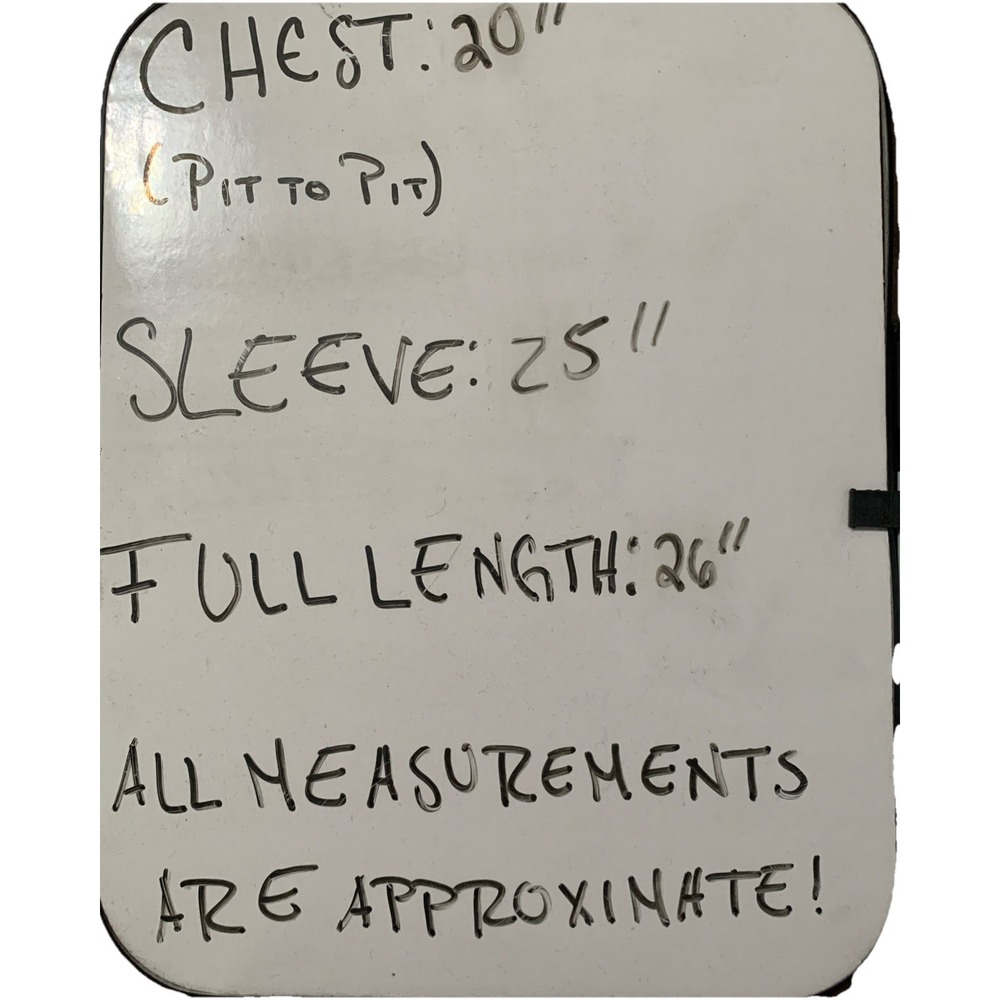 CHEST: 20"
(PIT TO PIT)
SLEEVE: 25"
FULL LENGTH: 26"
ALL MEASUREMENTS
ARE APPROXIMATE!